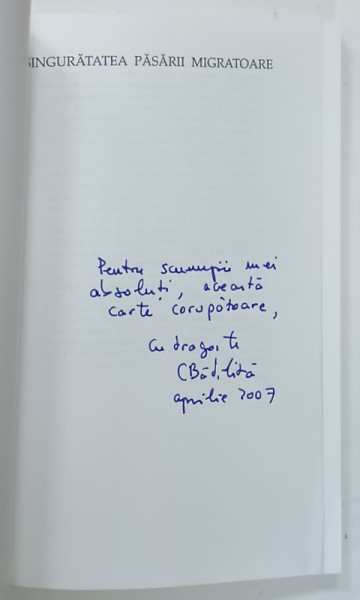 SINGURĂTATEA PĂSĂRII MIGRATOARE
Pentru scumpii mei
absoluți, această
carte corupătoare,
Cu dragoste
CBădiliță
aprilie 2007